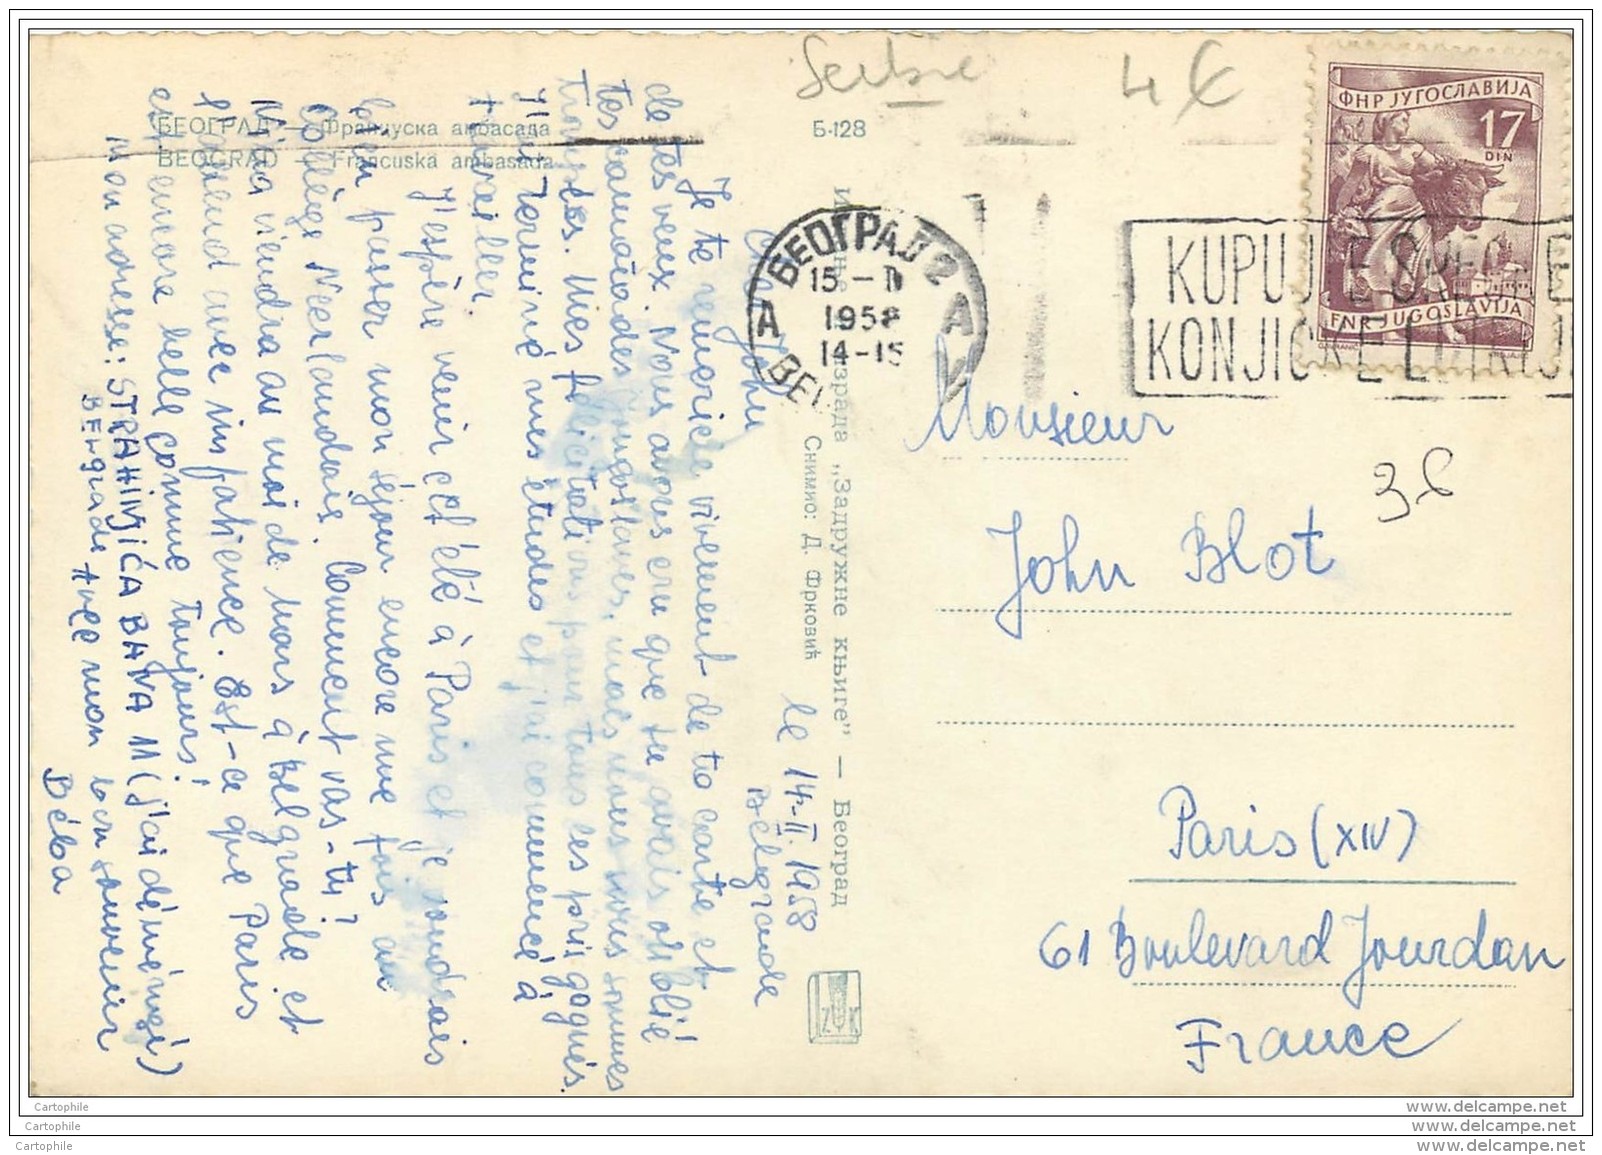 Serbie
4 €
БЕОГРАД — Француска амбасада
BEOGRAD — Francuska ambasada
Б-128
ФНР ЈУГОСЛАВИЈА
17
DIN
FNR JUGOSLAVIJA
БЕОГРАД 2
15-II
1958
14-15
A
A
KUPUJTE SREĆKE
KONJIČKE LUTRIJE
36
le 14-II. 1958
Bélegrade
Cher John
Je te remercie vivement de ta carte et
de tes vœux. Nous avons cru que tu avais oublié
tes camarades yougoslaves, mais nous nous sommes
trompés. Mes félicitations pour tous ces prix gagnés.
J'ai terminé mes études et j'ai commencé à
travailler.
J'espère venir cet été à Paris et je voudrais
bien passer mon séjour encore une fois au
Collège Néerlandais. Comment vas-tu?
viendra au moi de mars à Belgrade et
avec impatience. Est-ce que Paris
est encore belle comme toujours!
Mon adresse: STRAHINJIĆA BANA 11 (j'ai déménagé)
Belgrade Avec mon bon souvenir
Béba
Издање и израда „Задружне књиге" — Београд
Снимио: Д. Фрковић
ZK
Monsieur
John Blot
Paris (XIV)
61 Boulevard Jourdan
France
Cartophile
Cartophile
Cartophile
www.delcampe.net
www.delcampe.net
www.delcampe.net